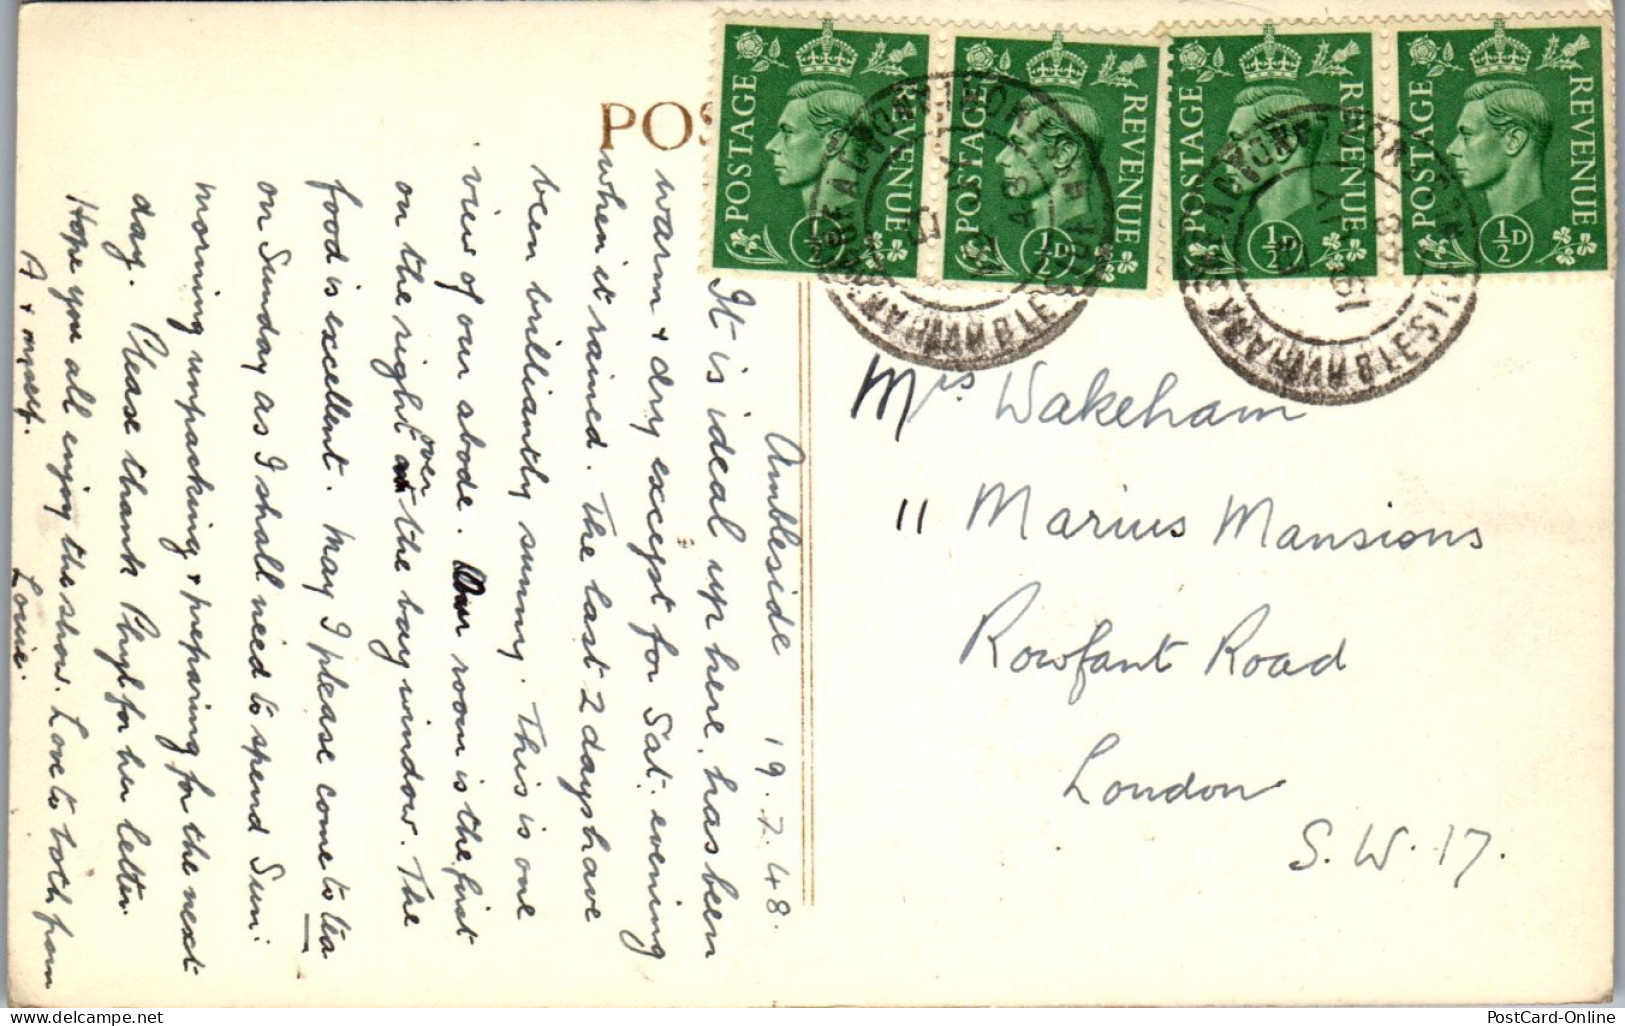 POS
POSTAGE REVENUE
½D
POSTAGE REVENUE
½D
POSTAGE REVENUE
½D
POSTAGE REVENUE
½D
AMBLESIDE
Ambleside 19.7.48.
It is ideal up here, has been
warm & dry except for Sat. evening
when it rained. The last 2 days have
been brilliantly sunny. This is one
view of our abode. Our room is the first
on the right over the bay window. The
food is excellent. May I please come to tea
on Sunday as I shall need to spend Sun.
morning unpacking & preparing for the next
day. Please thank Phyl for her letter.
Hope you all enjoy the show. Love to both from
A & myself. Louie.
Mrs Wakeham
11 Marius Mansions
Rowfant Road
London
S.W.17.
PostCard-Online